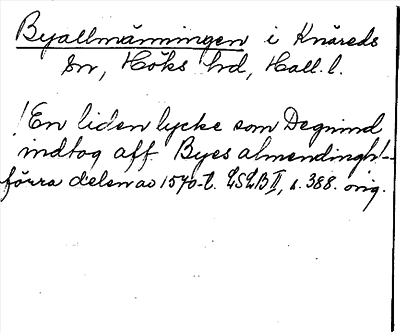 Byallmänningen i Knäreds
sn, Höks hd, Hall. l.
! En liden lycke som Degnind
indtog aff Byes almendingh! -
förra delen av 1570-t. LSLB II, s. 388. orig.